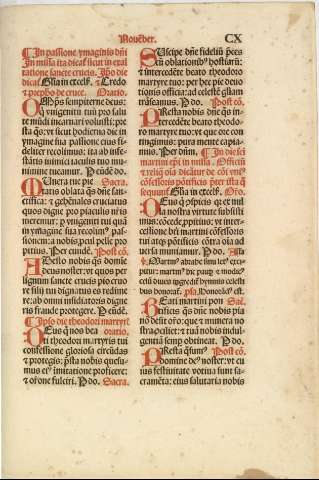 Nouēber.
CX
¶ In passione ymaginis dñi
In missa ita dicat̃ sicut in exal
tatione sancte crucis. Ipo die
dicat̃ Gl̃ia in excelẽ. ⁊ Credo
⁊ prepho de cruce. Oratio.
OMp̃s sempiterne deus:
q̃ vnigenitũ tuũ pro salu
te mũdi incarnari voluisti: pre
sta q̃s: vt sicut hodierna die in
ymagine ita passione eius fi
deliter recolimus: ita ab infe
statiõe inimici iaculis tuo mu
nimine tueamur. P eundẽ.
Unera tue pie Sacra.
tatis oblata q̃s dñe san
ctifica: ⁊ gehẽnales cruciatus
quos digne pro piaculis meremur
ymagine ita recolim⁹ pas
sionem: a nobis ꝓcul pelle pro
pitius. Per eundẽ. Post cõ.
ADesto nobis q̃s domie
deus noster: vt quos per
lignum sancte crucis pio cruo
re filij tui dignatus es redime
re: ab omni insidiatoris digne
ris fraude protegere. P eũdẽ.
¶ Ipso die theodori martyr̃
DEus q̃ nos bea oratio.
ti theodori martyris tui
confessione gloriosa circũdas
⁊ protegis: p̃sta nobis quesu-
mus ei⁹ imitatione proficere:
⁊ orõne fulciri. P do. Sacra.
SUscipe dñe fidelium p̃ces
cũ oblationib⁹ hostiarũ:
⁊ intercedẽte beato theodoro
martyre tuo: per hec pie deuo
tionis officia: ad celestẽ gl̃iam
trãseamus. P do. Post cõ.
PResta nobis dñe q̃s: in-
tercedẽte beato theodoro
martyre tuo: vt que ore con
tingimus: pura mente capia
mus. Per dñm. ¶ In die sci̇
martini ep̃i in missa. Officiũ
⁊ reliq̃ oĩa dicãtur de cõi vni⁹
cõfessoris põtificis p̃ter ista q̃
sequunt̃ Gl̃ia in excelẽ. Oro.
DEus q̃ cõspicis q̃r ex nul
la nostra virtute subsisti
mus: cõcede ꝓpitius: vt inter-
cessiõe beati martini cõfessoris
tui atq̃ põtificis cõtra oĩa ad
uersa muniamur. P do. Alla
℣. Martin⁹ abrahe sinu let⁹ exci
pitur: martin⁹ hic paup ⁊ modic⁹
celũ diues ingredit̃ hymnis celesti
bus honorat̃. Honorat⁹ est.
BEati martini pon Sac̃.
tificis q̃s dñe nobis pia
nõ desit oro: que ⁊ munera no
stra cõciliet: ⁊ tuã nobis indul-
gentiã semp̃ obtineat. P do.
PResta q̃sum⁹ Post cõ.
domine de⁹ noster: vt cu
ius festiuitate votiua sunt sa-
cramẽta: eius salutaria nobis